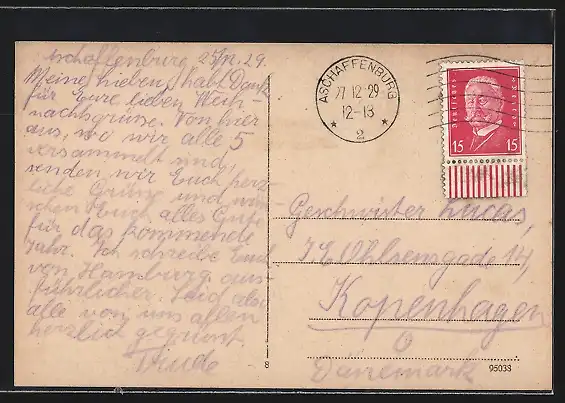 Aschaffenburg, 25/12. 29.
Meine Lieben, habt Dank
für Eure lieben Weih-
nachtsgrüsse. Von hier
aus, wo wir alle 5
versammelt sind,
senden wir Euch herz-
liche Grüsse und wün-
schen Euch alles Gute
für das kommende
Jahr. Ich schreibe Euch
von Hamburg aus-
führlicher. Seid also
alle von uns allen
herzlich gegrüsst
Trude
ASCHAFFENBURG
27 12 29
12-13
* 2 *
Deutsches Reich
15 15
Geschwister Lucas,
Ohlsensgade 14,
Kopenhagen
Ö
Dänemark
8
95038